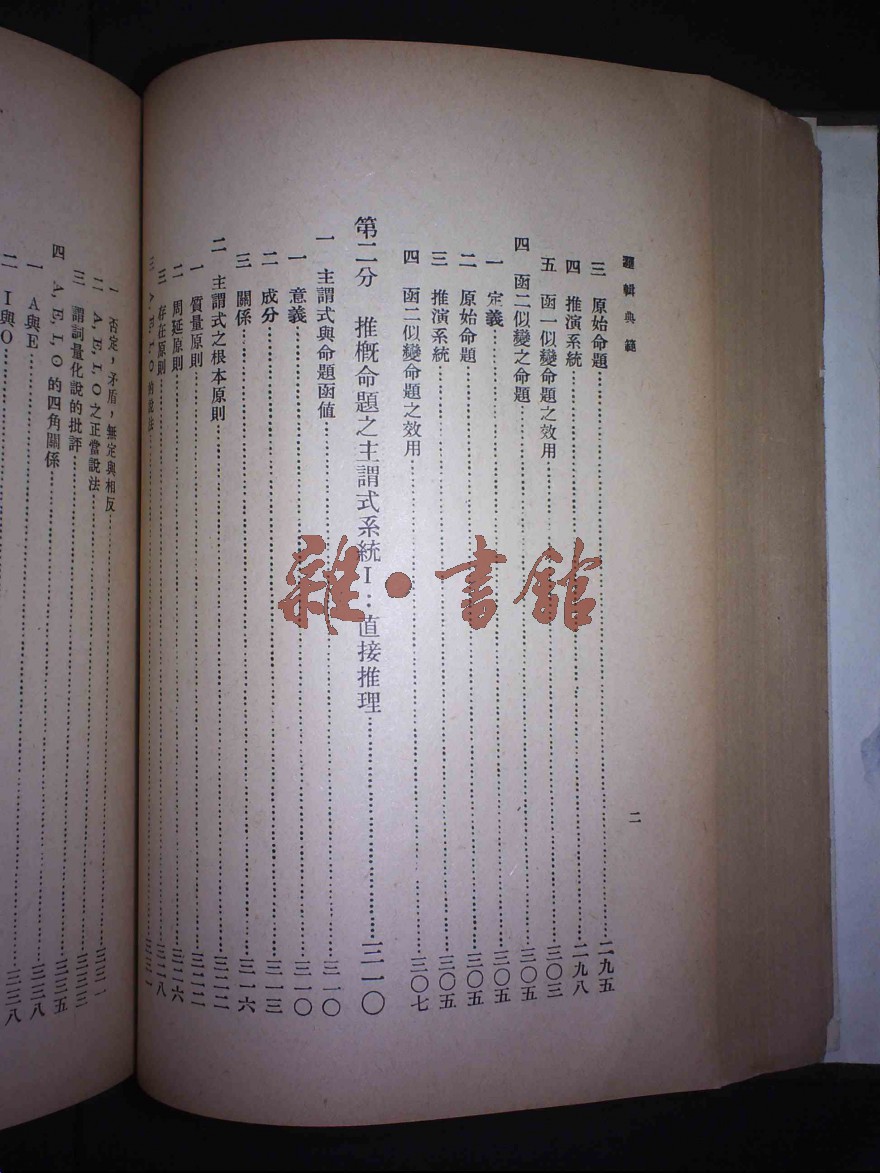 邏輯典範
二
三 原始命題……二九五
四 推演系統……二九八
五 函一似變命題之效用……三〇三
四 函二似變之命題……三〇五
一 定義……三〇五
二 原始命題……三〇五
三 推演系統……三〇五
四 函二似變命題之效用……三〇七
第二分 推概命題之主謂式系統I:直接推理……三一〇
一 主謂式與命題函值……三一〇
一 意義……三一〇
二 成分……三一三
三 關係……三一六
二 主謂式之根本原則……三二二
一 質量原則……三二二
二 周延原則……三二六
三 存在原則……三二八
三 A,E,I,O的說法……三三一
一 否定,矛盾,無定與相反……三三一
二 A,E,I,O之正當說法……三三三
三 謂詞量化說的批評……三三五
四 A,E,I,O的四角關係……三三八
一 A與E……三三八
二 I與O……三三八
雜·書館